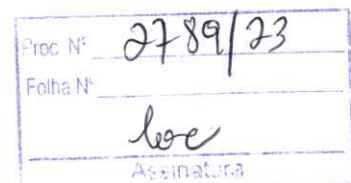 Proc. Nº 2789/23
Folha Nº
Assinatura